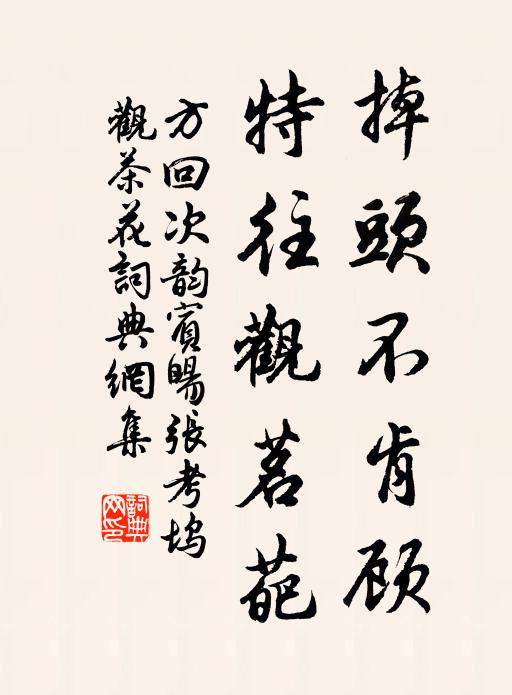 掉頭不肯顧
特往觀茗葩
方回次韵賓暘張考塢
觀茶花詞典網集
詞典
网印